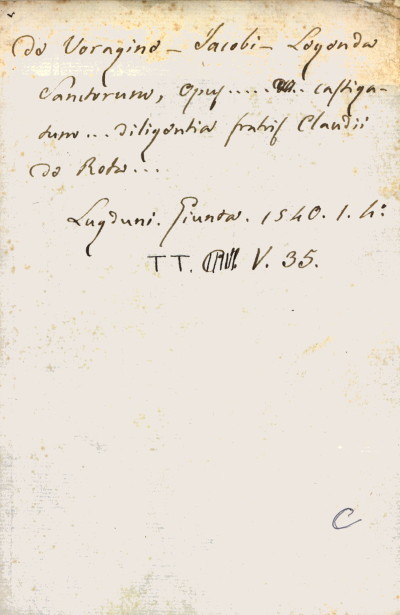 de Voragine – Jacobi – Legenda
Sanctorum, opus..... castiga-
tum... diligentia fratris Claudii
de Rota...
Lugduni. Giunta. 1540. 1. 4:
TT. V. 35.
C